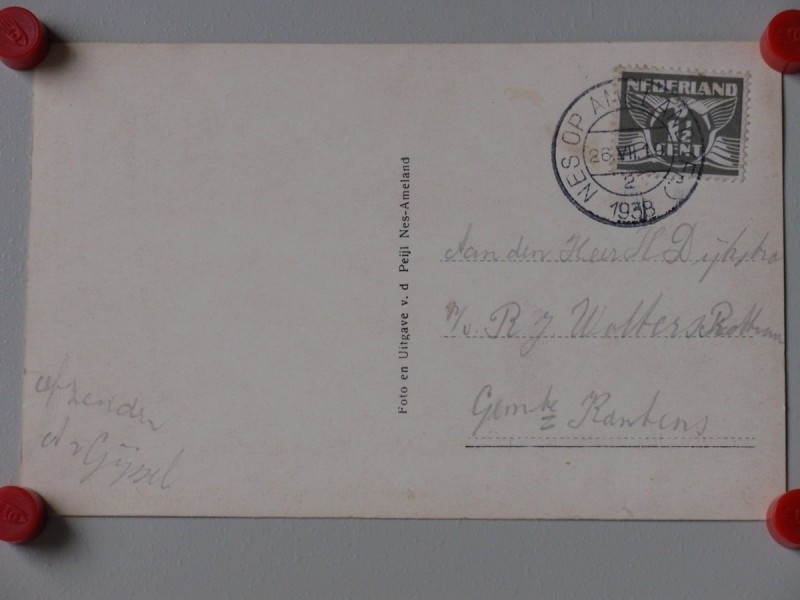 NEDERLAND
2½
CENT
NES OP AMELAND
26.VII.
2
1938
Foto en Uitgave v. d Peijl Nes-Ameland
Aan den Heer H Dijkstra
p/a R J Wolters Rottum
Gemte Kantens
afzender
A v Gijssel